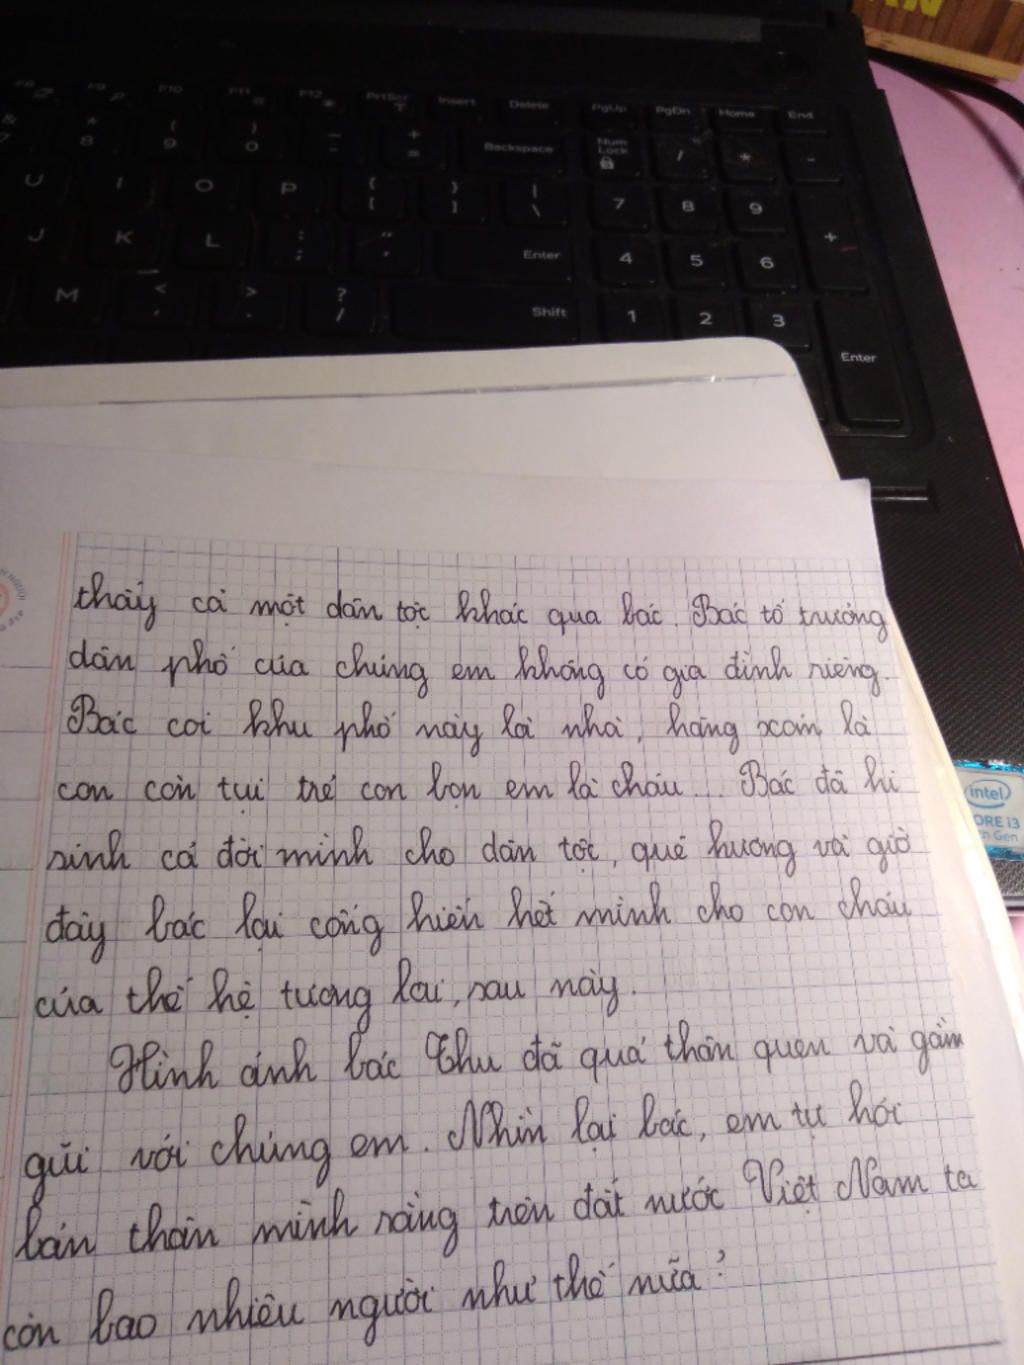 F9 F10 F11 F12 PrtScr Insert Delete PgUp PgDn Home End
& 7 * 8 ( 9 ) 0 _ - + = Backspace Num Lock / * -
U I O P { [ } ] | \ 7 8 9 +
J K L : ; " ' Enter 4 5 6
M < , > . ? / Shift 1 2 3 Enter
thấy cả một dân tộc khác qua bác. Bác tổ trưởng
dân phố của chúng em không có gia đình riêng.
Bác coi khu phố này là nhà, hàng xóm là
con còn tụi trẻ con bọn em là cháu... Bác đã hi
sinh cả đời mình cho dân tộc, quê hương và giờ
đây bác lại cống hiến hết mình cho con cháu
của thế hệ tương lai, sau này.
Hình ảnh bác Thu đã quá thân quen và gần
gũi với chúng em. Nhìn lại bác, em tự hỏi
bản thân mình rằng trên đất nước Việt Nam ta
còn bao nhiêu người như thế nữa?
intel
CORE i3